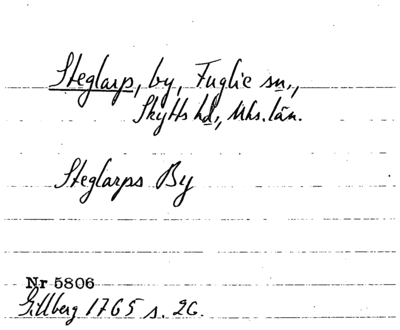 Steglarp, by, Fuglie sn.,
Skytts hd., Mhs. län.
Steglarps By
Nr 5806
Gillberg 1765 s. 26.